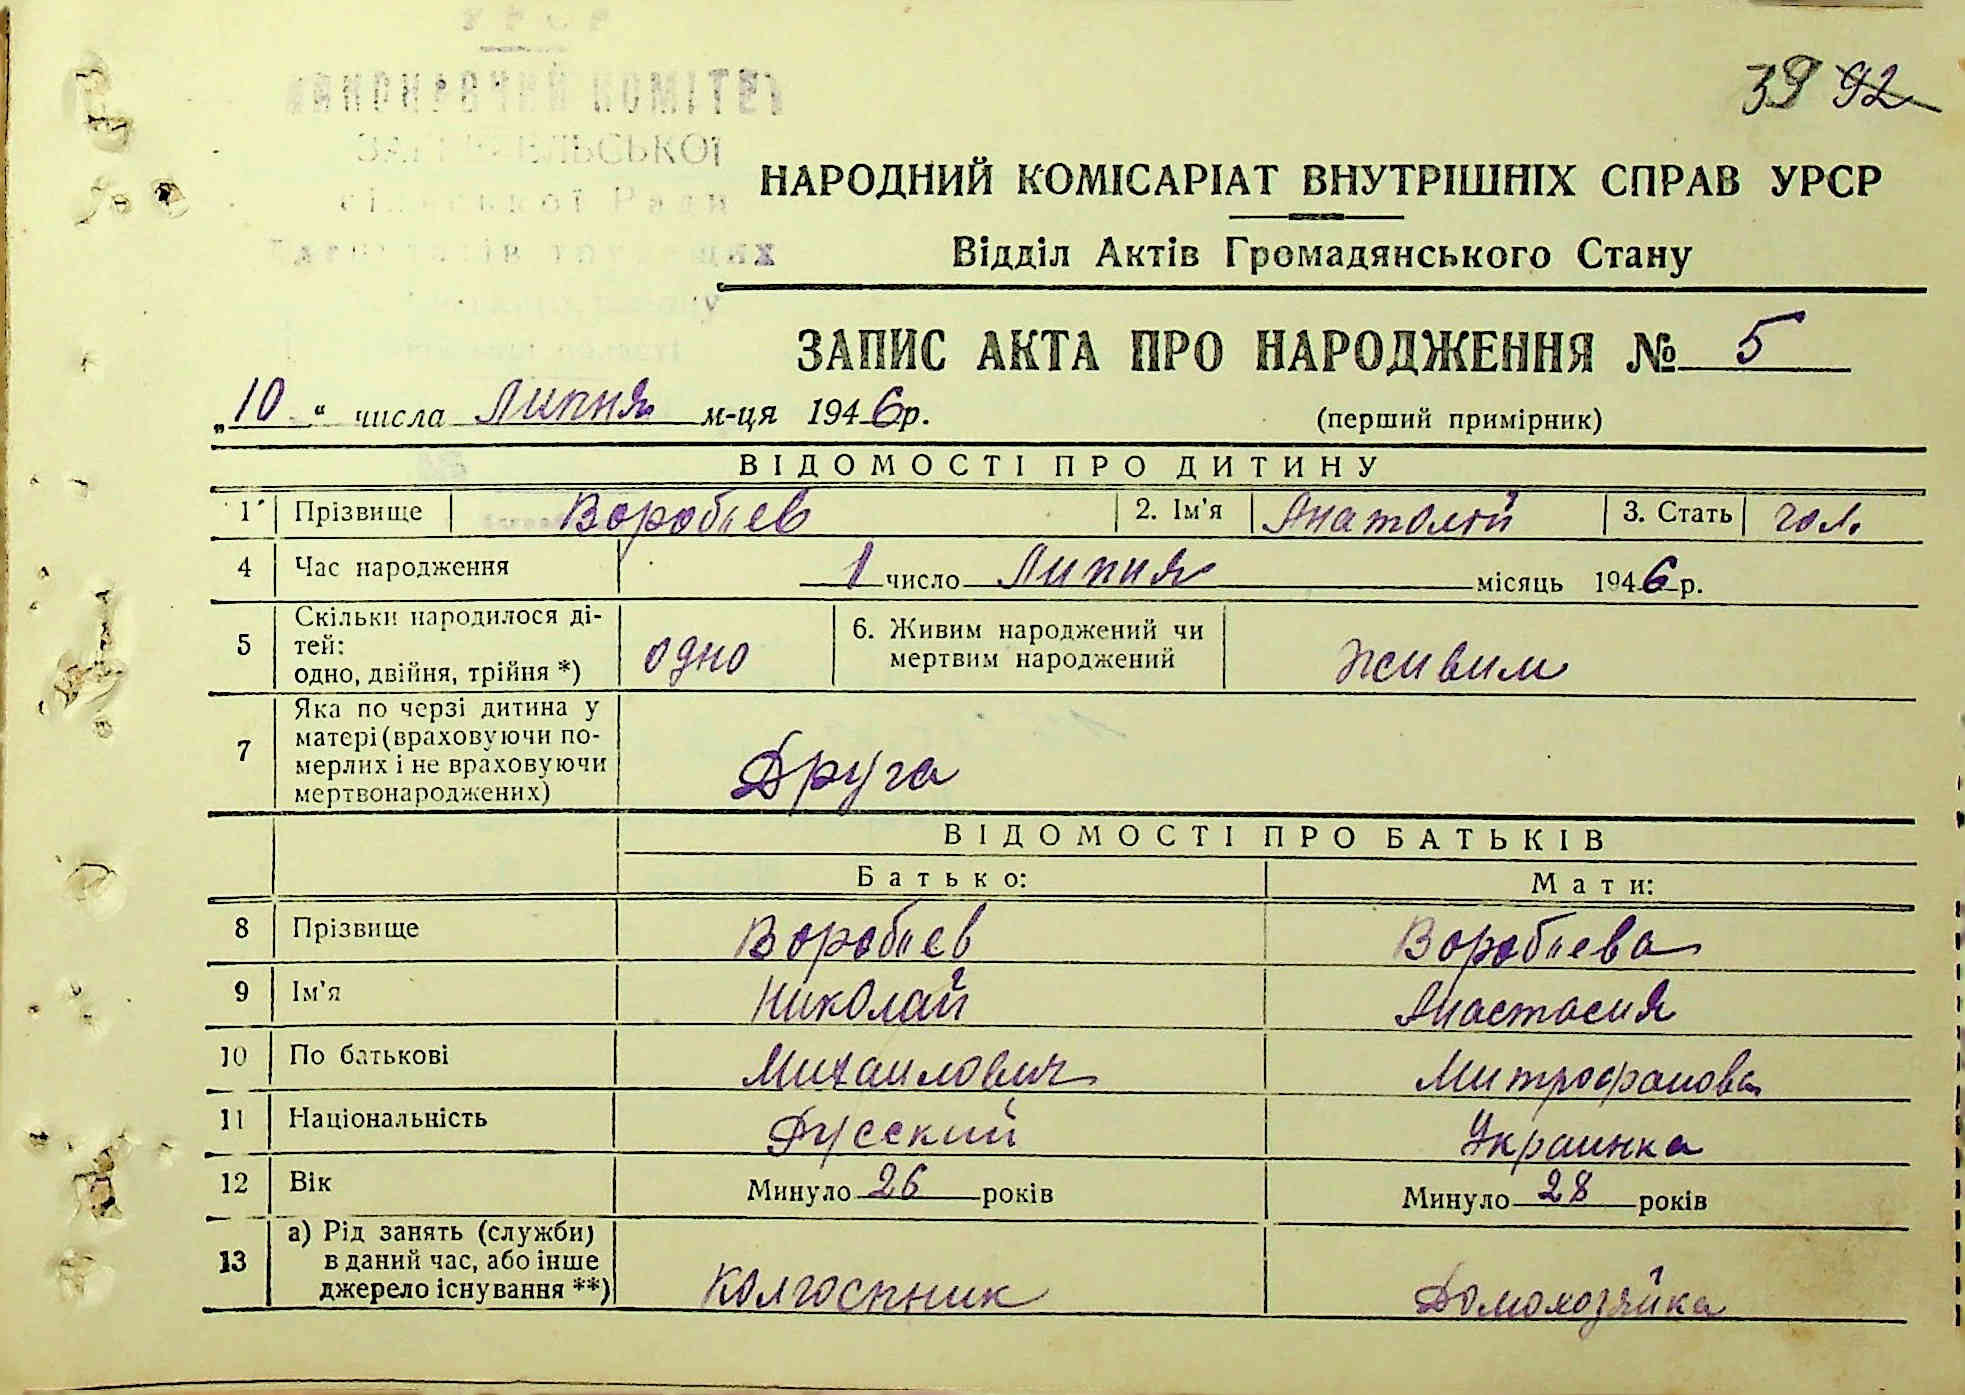 УРСР
ВИКОНАВЧИЙ КОМІТЕТ
сільської Ради
Депутатів трудящих
області
39 92
НАРОДНИЙ КОМІСАРІАТ ВНУТРІШНІХ СПРАВ УРСР
Відділ Актів Громадянського Стану
ЗАПИС АКТА ПРО НАРОДЖЕННЯ № 5
„10“ числа Липня м-ця 1946 р. (перший примірник)
ВІДОМОСТІ ПРО ДИТИНУ
1 Прізвище Воробьев 2. Ім'я Анатолій 3. Стать чол.
4 Час народження 1 число Липня місяць 1946 р.
5 Скільки народилося ді-
тей:
одно, двійня, трійня *) одно 6. Живим народжений чи
мертвим народжений Живим
7 Яка по черзі дитина у
матері (враховуючи по-
мерлих і не враховуючи
мертвонароджених) Друга
ВІДОМОСТІ ПРО БАТЬКІВ
Батько: Мати:
8 Прізвище Воробьев Воробьева
9 Ім'я Николай Анастасия
10 По батькові Михаилович Митрофанова
11 Національність Русский Украинка
12 Вік Минуло 26 років Минуло 28 років
13 а) Рід занять (служби)
в даний час, або інше
джерело існування **) Колгоспник Домохозяйка